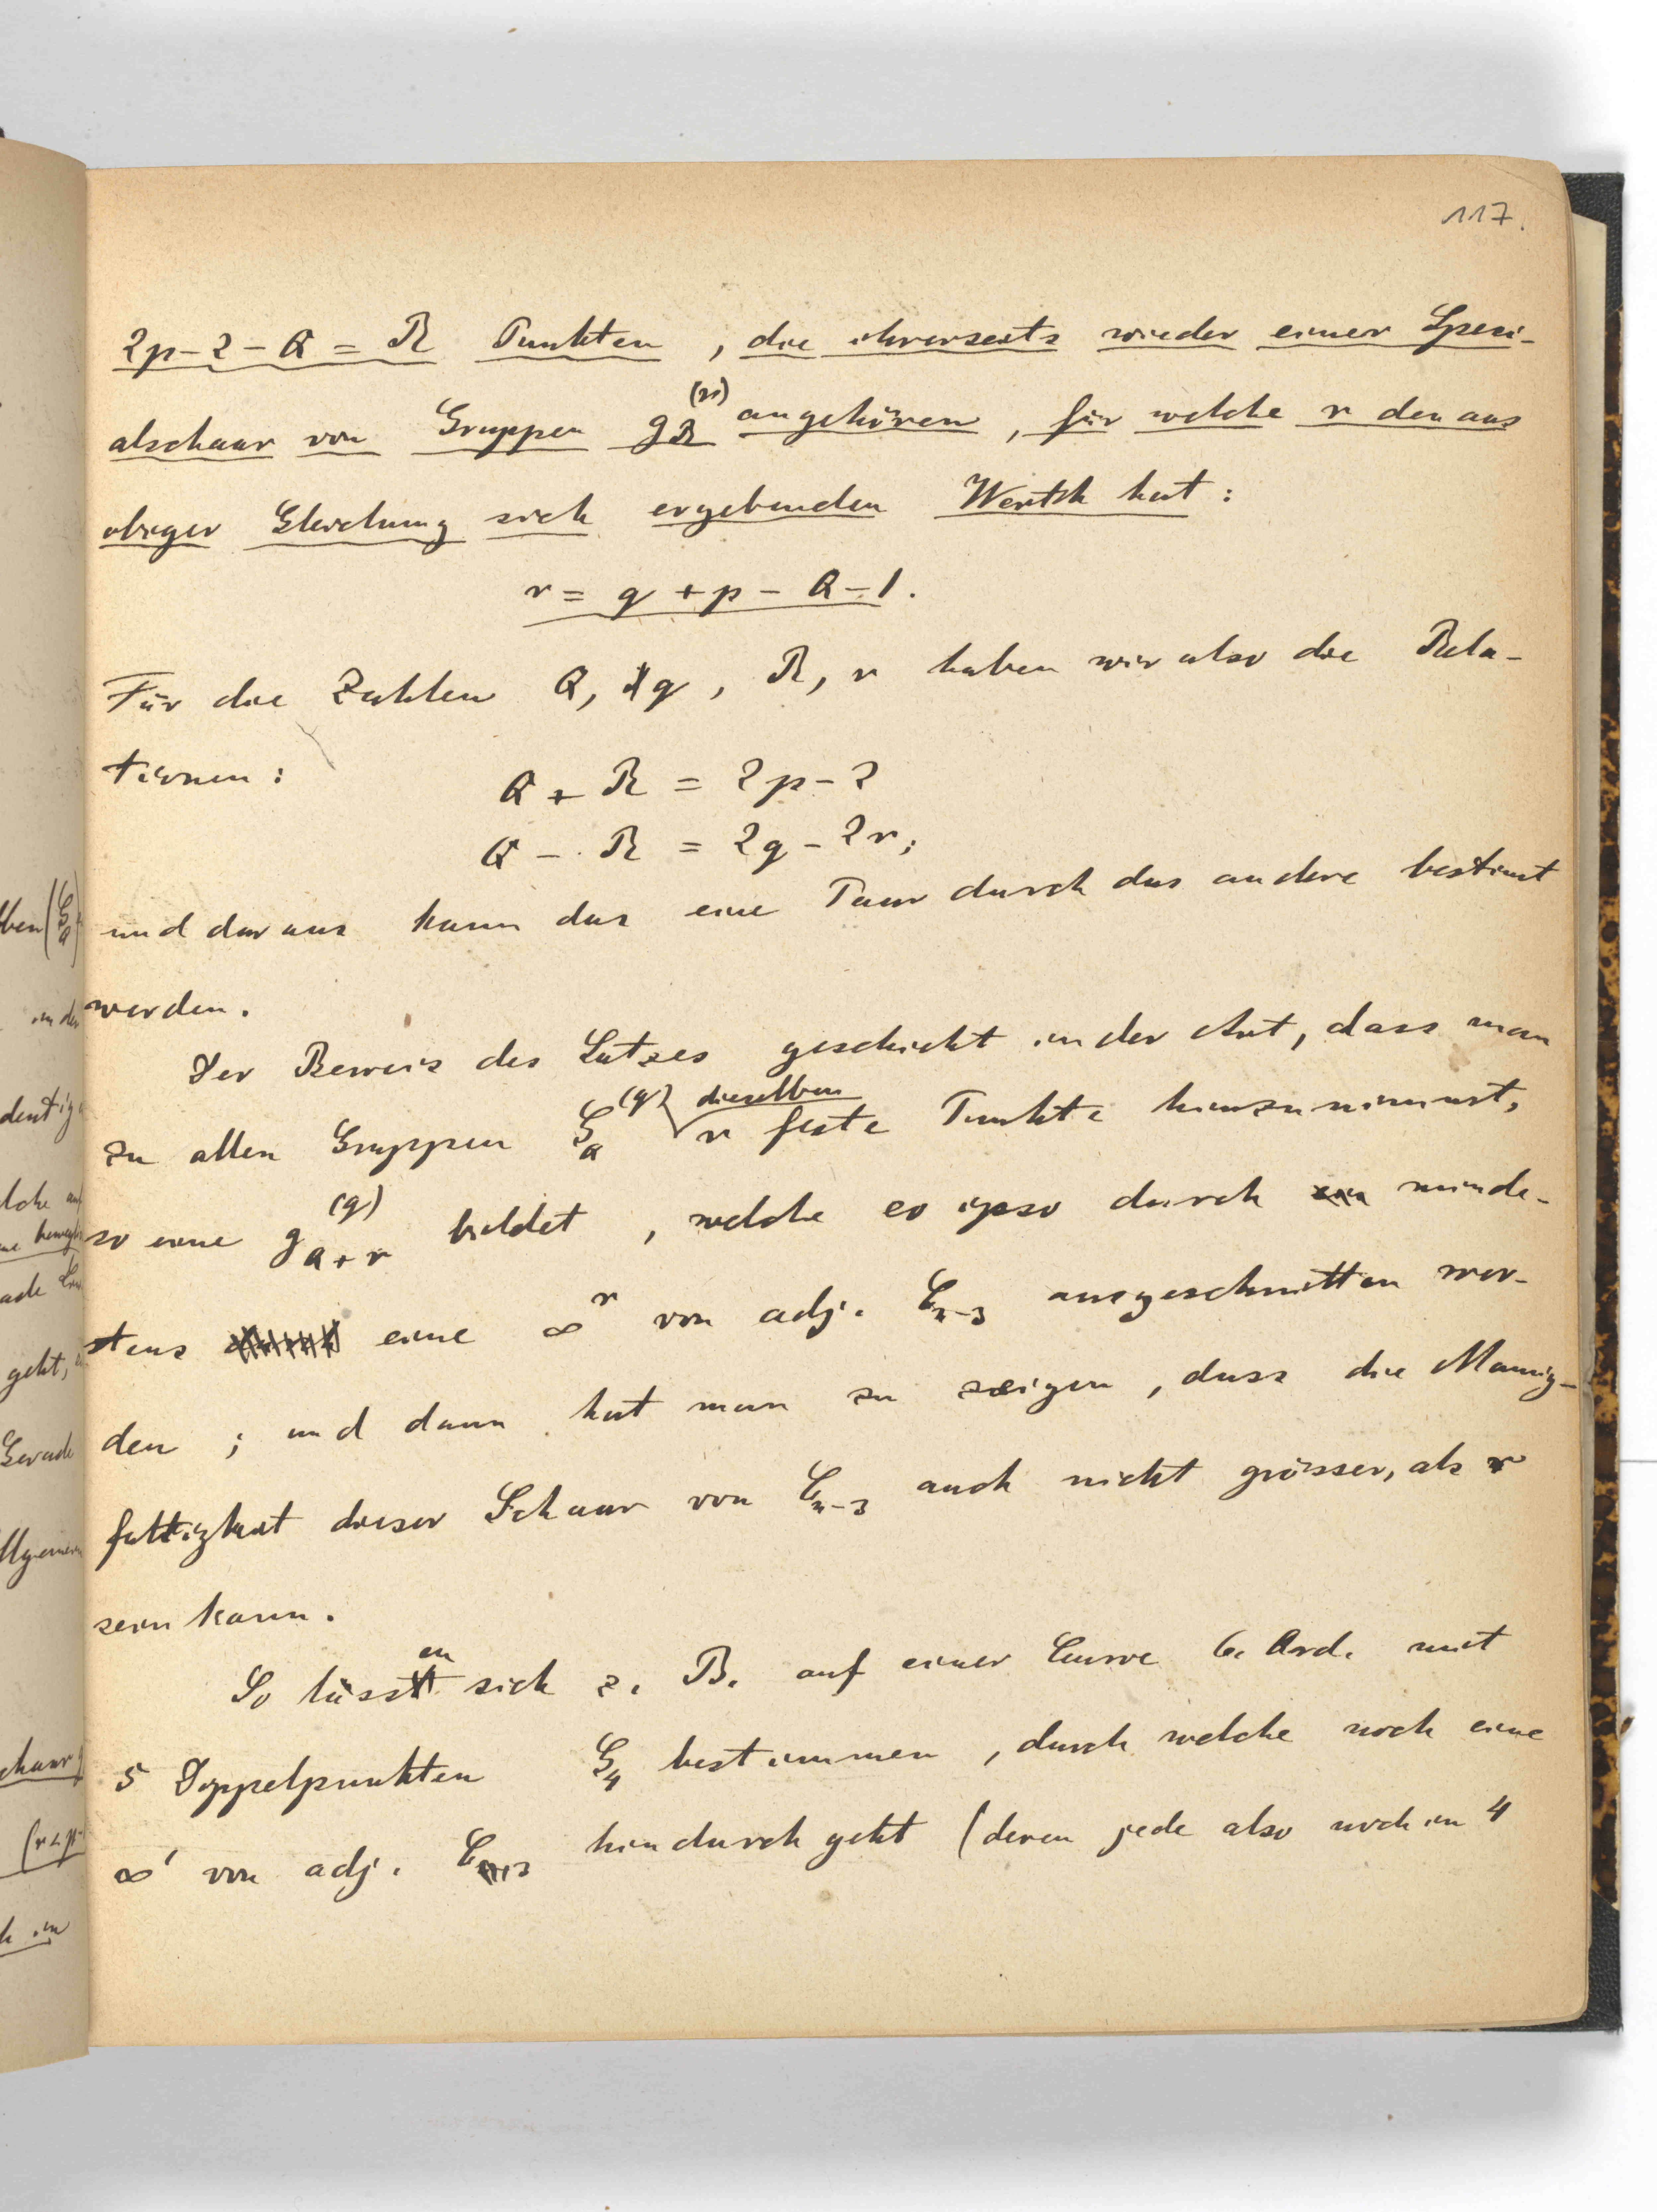 117.
2p-2-Q = R Punkten, die ihrerseits wieder einer Speci-
alschaar von Gruppen g_R^(r) angehören, für welche r den aus
obiger Gleichung sich ergebenden Werth hat:
r = q + p - Q - 1.
Für die Zahlen Q, q, R, r haben wir also die Rela-
tionen:
Q + R = 2p - 2
Q - R = 2q - 2r;
und daraus kann das eine Paar durch das andere bestimt
werden.
Der Beweis des Satzes geschieht in der Art, dass man
zu allen Gruppen G_Q^(q) dieselben r feste Punkte hinzunimmt,
so eine g_{Q+r}^(q) bildet, welche eo ipso durch minde-
stens eine ∞^r von adj. C_{n-3} ausgeschnitten wer-
den; und dann hat man zu zeigen, dass die Mannig-
faltigkeit dieser Schaar von C_{n-3} auch nicht grösser, als r
sein kann.
So lassen sich z. B. auf einer Curve 6. Ord. mit
5 Doppelpunkten G_4 bestimmen, durch welche noch eine
∞^1 von adj. C_3 hindurch geht (deren jede also noch in 4
ben (G_Q)
in der
deutig
lche
geht,
Gerade
llgemein
chaar
(r<p-
h in